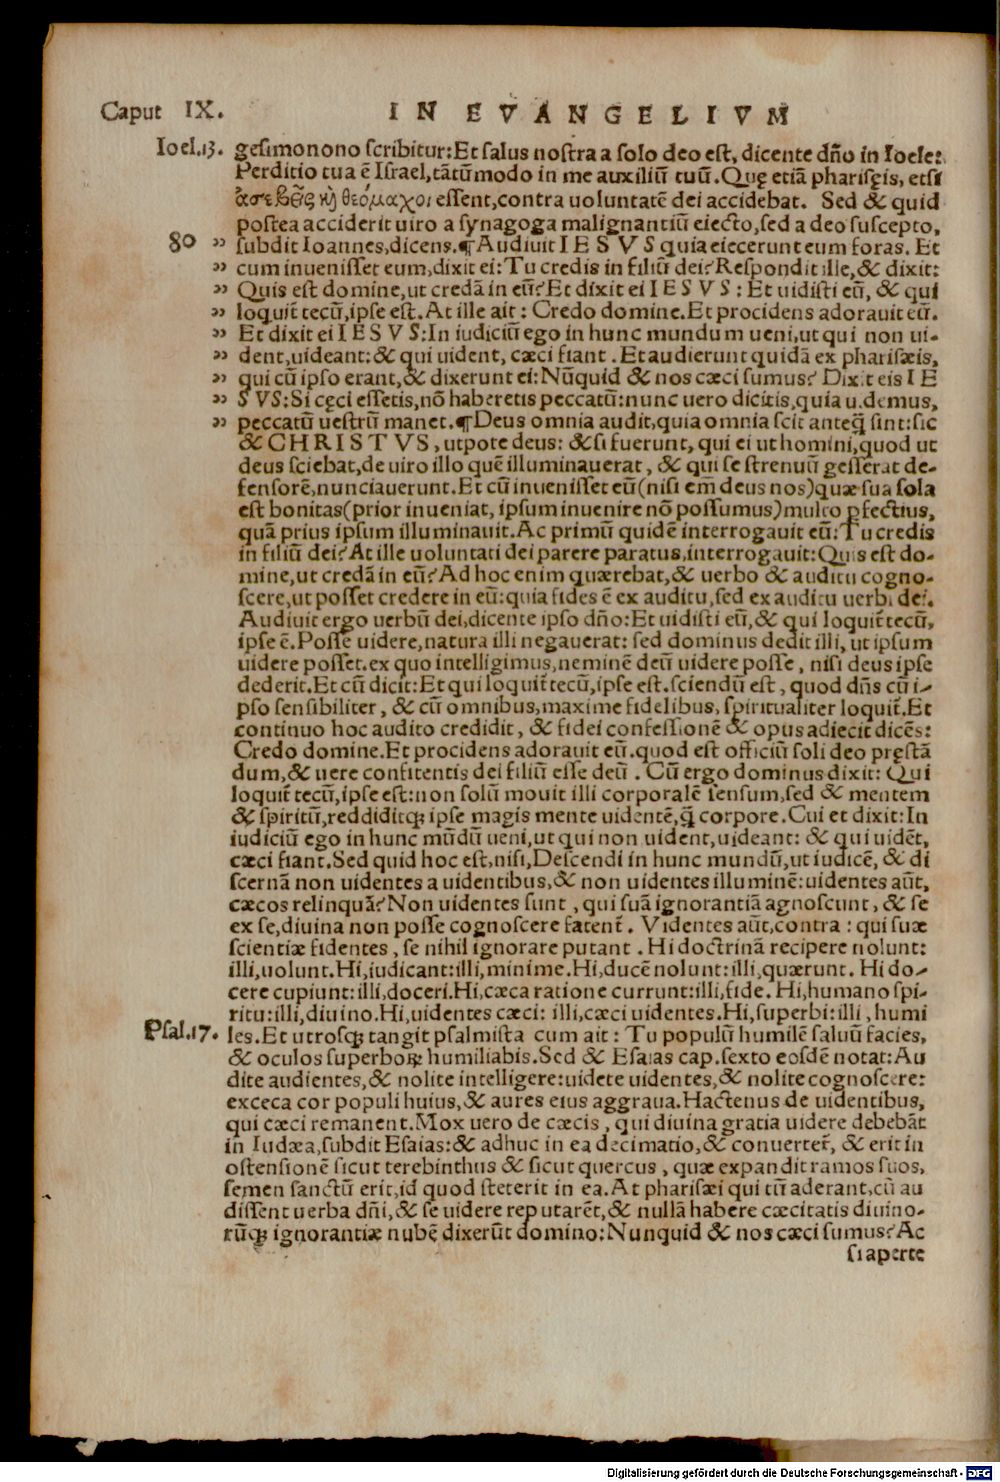 Caput IX. IN EVANGELIVM
Ioel.13. gesimonono scribitur: Et salus nostra a solo deo est, dicente dño in Ioele:
Perditio tua ē Israel, tātūmodo in me auxiliū tuū. Quę etiā pharisęis, etsi
ἀσεβεῖς κỳ θεόμαχοι essent, contra uoluntatē dei accidebat. Sed & quid
postea acciderit uiro a synagoga malignantiū eiecto, sed a deo suscepto,
80 ” subdit Ioannes, dicens. ¶ Audiuit IESVS quia eiecerunt eum foras. Et
” cum inuenisset eum, dixit ei: Tu credis in filiū dei? Respondit ille, & dixit:
” Quis est domine, ut credā in eū? Et dixit ei IESVS: Et uidisti eū, & qui
” loquit̃ tecū, ipse est. At ille ait: Credo domine. Et procidens adorauit eū.
” Et dixit ei IESVS: In iudiciū ego in hunc mundum ueni, ut qui non ui-
” dent, uideant: & qui uident, cæci fiant. Et audierunt quidā ex pharisæis,
” qui cū ipso erant, & dixerunt ei: Nūquid & nos cæci sumus? Dixit eis IE
” SVS: Si cęci essetis, nō haberetis peccatū: nunc uero dicitis, quia uidemus,
” peccatū uestrū manet. ¶ Deus omnia audit, quia omnia scit anteq̃ sint: sic
& CHRISTVS, utpote deus: & si fuerunt, qui ei ut homini, quod ut
deus sciebat, de uiro illo quē illuminauerat, & qui se strenuū gesserat de-
fensorē, nunciauerunt. Et cū inuenisset eū (nisi em̃ deus nos) quæ sua sola
est bonitas (prior inueniat, ipsum inuenire nō possumus) multo ꝑfectius,
quā prius ipsum illuminauit. Ac primū quidē interrogauit eū: Tu credis
in filiū dei? At ille uoluntati dei parere paratus, interrogauit: Quis est do-
mine, ut credā in eū? Ad hoc enim quærebat, & uerbo & auditu cogno-
scere, ut posset credere in eū: quia fides ē ex auditu, sed ex auditu uerbi dei.
Audiuit ergo uerbū dei, dicente ipso dño: Et uidisti eū, & qui loquit̃ tecū,
ipse ē. Posse uidere, natura illi negauerat: sed dominus dedit illi, ut ipsum
uidere posset. ex quo intelligimus, neminē deū uidere posse, nisi deus ipse
dederit. Et cū dicit: Et qui loquit̃ tecū, ipse est. sciendū est, quod dñs cū i-
pso sensibiliter, & cū omnibus, maxime fidelibus, spiritualiter loquit̃. Et
continuo hoc audito credidit, & fidei confessionē & opus adiecit dicēs:
Credo domine. Et procidens adorauit eū. quod est officiū soli deo pręstā
dum, & uere confitentis dei filiū esse deū. Cū ergo dominus dixit: Qui
loquit̃ tecū, ipse est: non solū mouit illi corporalē sensum, sed & mentem
& spiritū, reddiditq; ipse magis mente uidentē, q̃ corpore. Cui et dixit: In
iudiciū ego in hunc mūdū ueni, ut qui non uident, uideant: & qui uidēt,
cæci fiant. Sed quid hoc est, nisi, Descendi in hunc mundū, ut iudicē, & di
scernā non uidentes a uidentibus, & non uidentes illuminē: uidentes aūt,
cæcos relinquā? Non uidentes sunt, qui suā ignorantiā agnoscunt, & se
ex se, diuina non posse cognoscere fatent̃. Videntes aūt, contra: qui suæ
scientiæ fidentes, se nihil ignorare putant. Hi doctrinā recipere nolunt:
illi, uolunt. Hi, iudicant: illi, minime. Hi, ducē nolunt: illi, quærunt. Hi do-
cere cupiunt: illi, doceri. Hi, cæca ratione currunt: illi, fide. Hi, humano spi-
ritu: illi, diuino. Hi, uidentes cæci: illi, cæci uidentes. Hi, superbi: illi, humi
Psal.17. les. Et utrosq; tangit psalmista cum ait: Tu populū humilē saluū facies,
& oculos superboꝝ humiliabis. Sed & Esaias cap. sexto eosdē notat: Au
dite audientes, & nolite intelligere: uidete uidentes, & nolite cognoscere:
exceca cor populi huius, & aures eius aggraua. Hactenus de uidentibus,
qui cæci remanent. Mox uero de cæcis, qui diuina gratia uidere debebāt
in Iudæa, subdit Esaias: & adhuc in ea decimatio, & conuertet̃, & erit in
ostensionē sicut terebinthus & sicut quercus, quæ expandit ramos suos,
semen sanctū erit, id quod steterit in ea. At pharisæi qui tū aderant, cū au
dissent uerba dñi, & se uidere reputarēt, & nullā habere cæcitatis diuino-
rūq; ignorantiæ nubē dixerūt domino: Nunquid & nos cæci sumus? Ac
si aperte
Digitalisierung gefördert durch die Deutsche Forschungsgemeinschaft - DFG